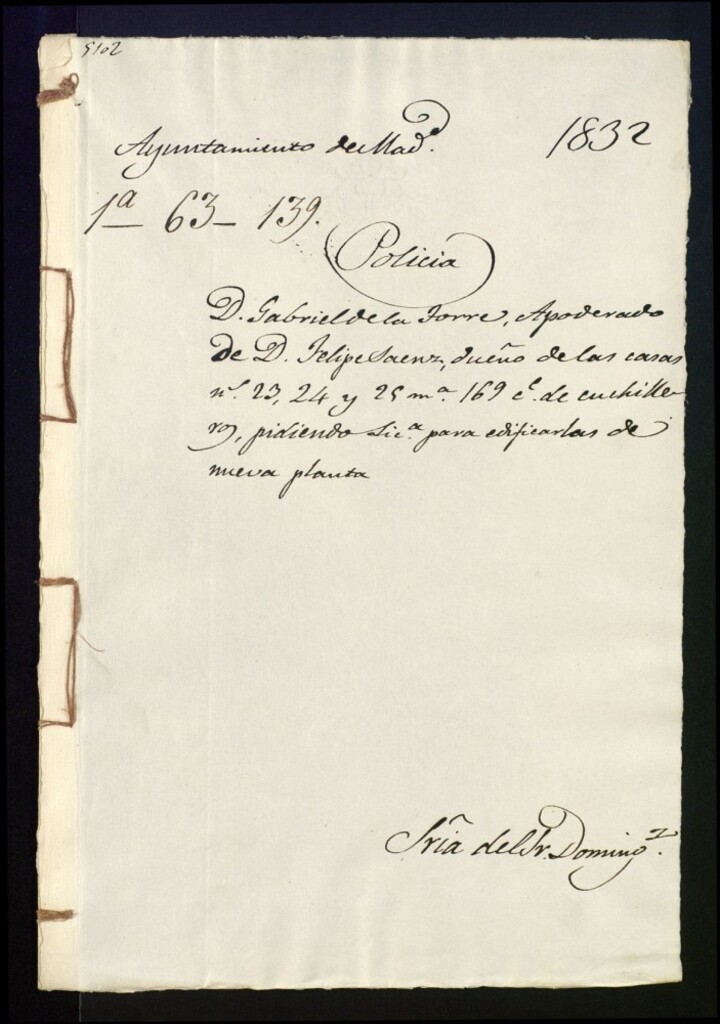 5102
Ayuntamiento de Mad.d
1832
1a 63 - 139.
Policia
D. Gabriel de la Torre, Apoderado
de D. Felipe Saenz, dueño de las casas
ns. 23, 24 y 25 m.a 169 c.e de cuchille-
ros, pidiendo lic.a para edificarlas de
nueva planta
Sria del Sr. Doming.z